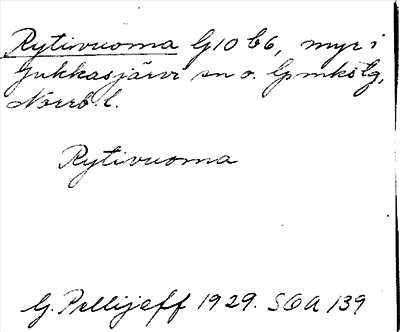 Rytivuoma G10 b6, myr i
Jukkasjärvi sn o. lpmksbg,
Norrb. l.
Rytivuoma
G. Pellijeff 1929. SOA 139